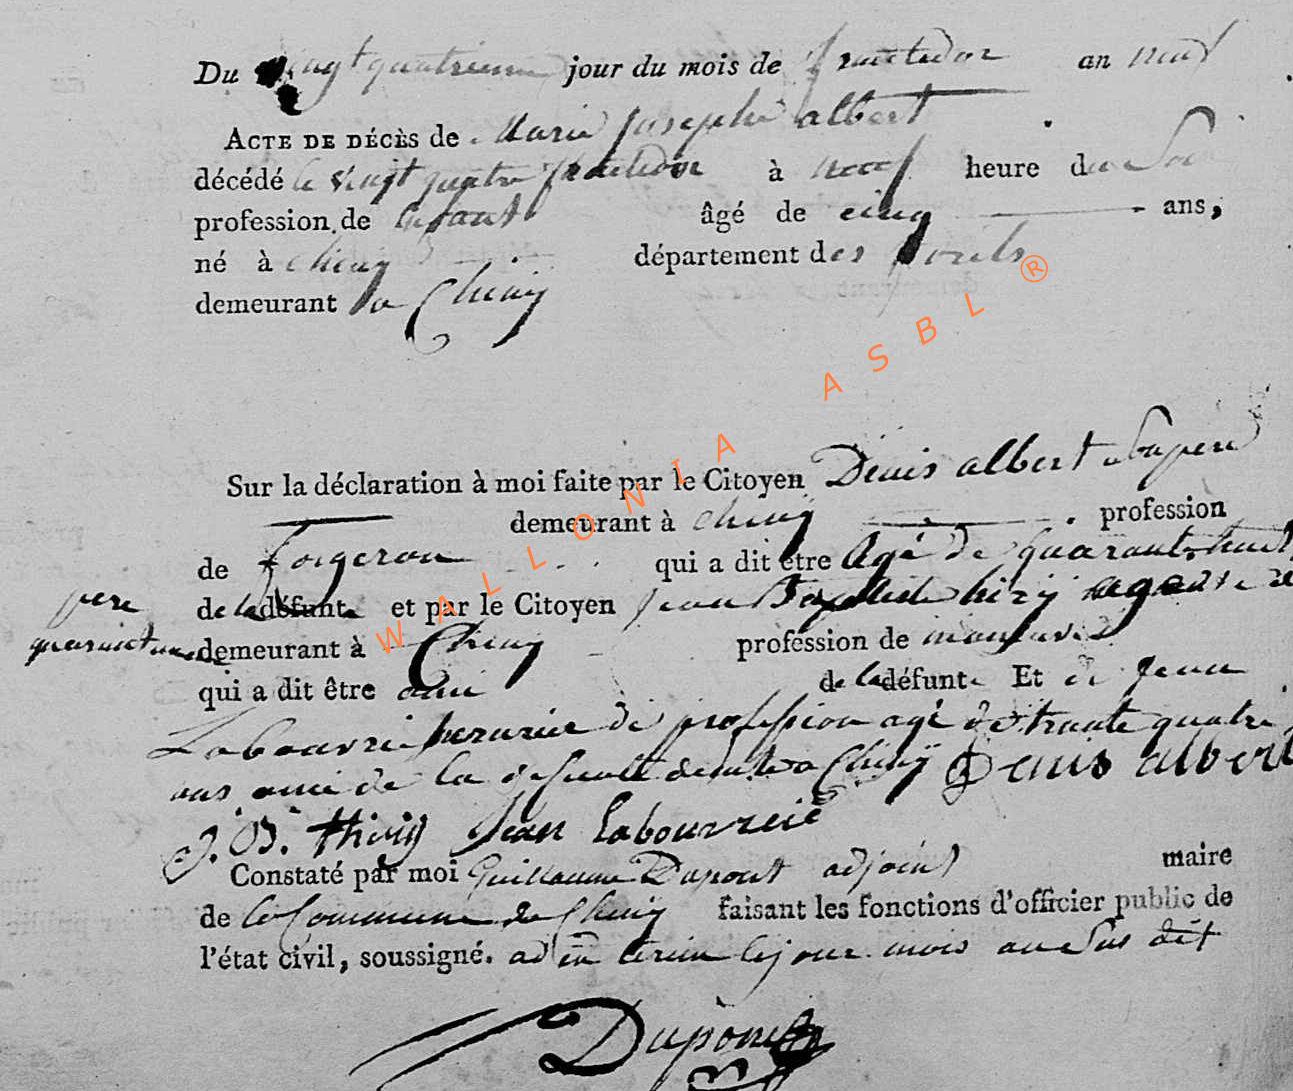 Du vingt quatrieme jour du mois de fructidor an neuf
ACTE DE DÉCÈS de Marie Josephe albert
décédé le vingt quatre fructidor à neuf heure du Soir
profession de enfant âgé de cinq ans,
né à chiny département des forets
demeurant a Chiny
WALLONIA ASBL ®
Sur la déclaration à moi faite par le Citoyen Denis albert
demeurant à chiny profession
de forgeron qui a dit être Agé de quarante huit
pere de la défunte et par le Citoyen jean Baptiste agé de
quarante demeurant à Chiny profession de
qui a dit être ami de la défunte Et de jean
Labouverie de profession agé de trante quatre
ans ami de la defunte a Chiny Denis albert
J. B. thiry Jean labouverie
Constaté par moi Guillaume Dupont adjoint maire
de la Commune de Chiny faisant les fonctions d'officier public de
l'état civil, soussigné. ad in terim les jour mois an Sus dit
Dupont